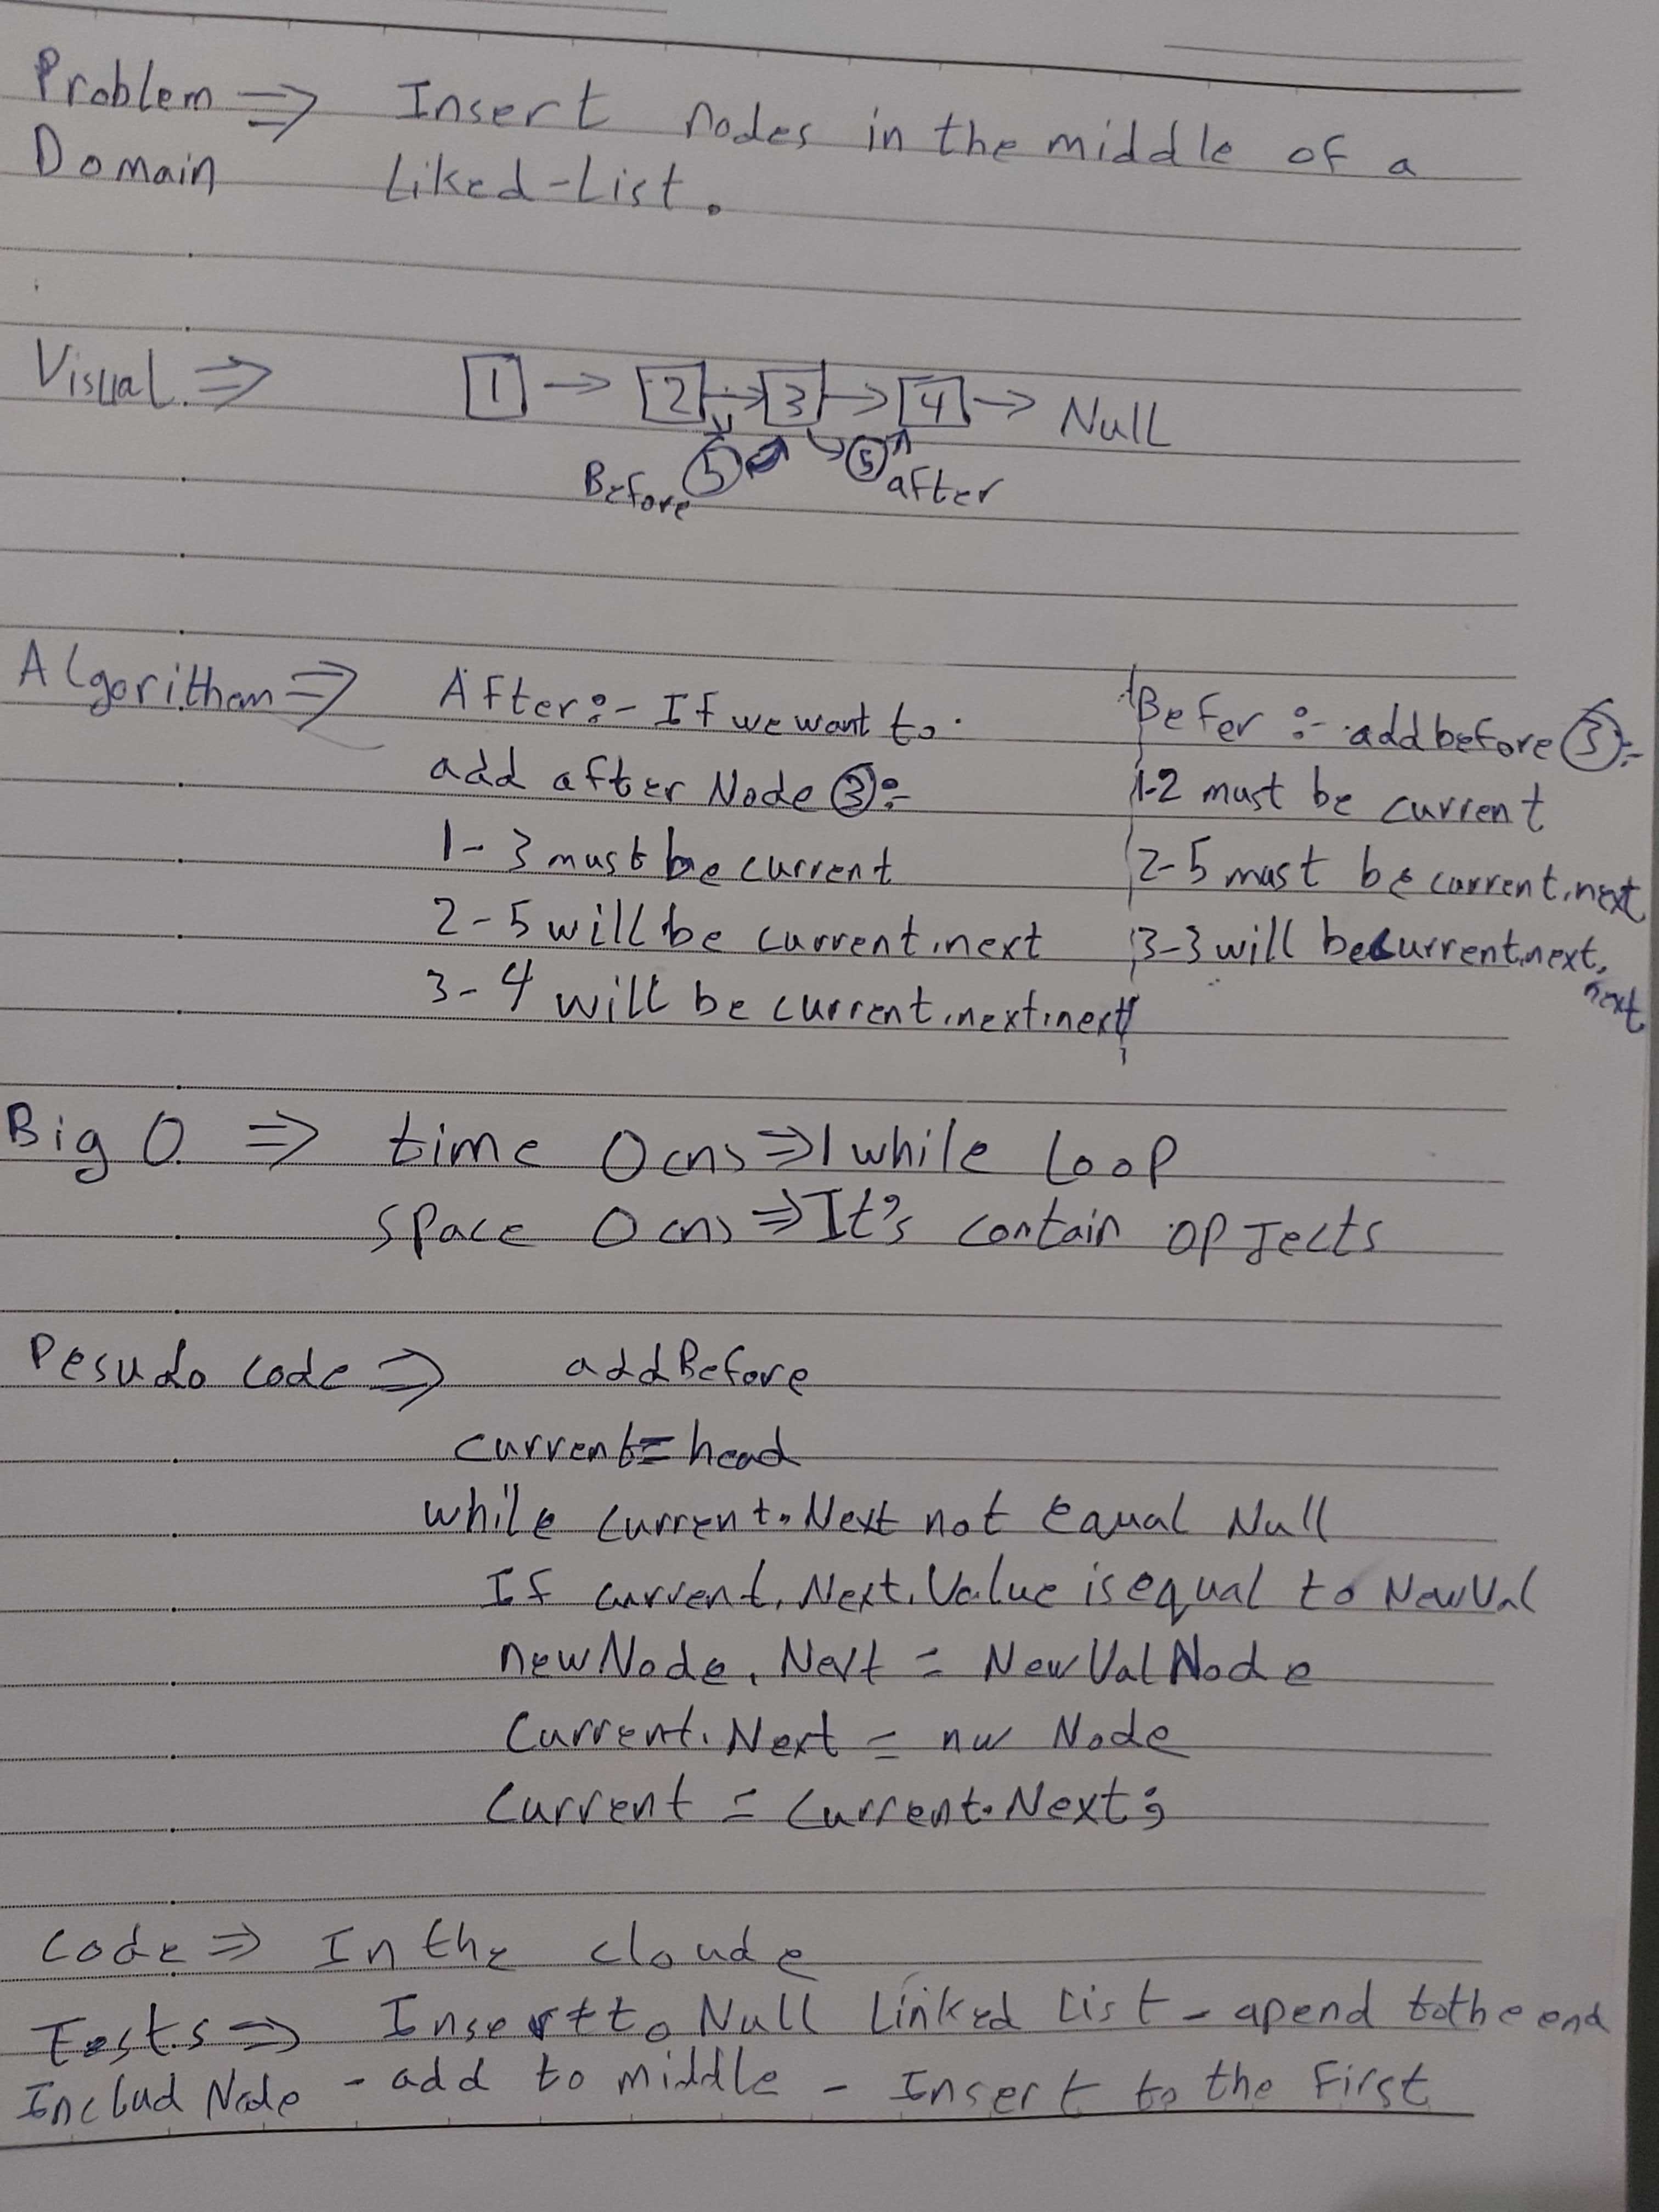 Problem ⇒ Insert nodes in the middle of a
Domain Liked-List.
Visual ⇒ 1 → 2 → 3 → 4 → Null
Before 5 5 after
Algorithm ⇒ After:- If we want to
add after Node 3:-
1- 3 must be current
2- 5 will be current.next
3- 4 will be current.next.next
Befer :- add before 3:-
1-2 must be current
2-5 must be current.next
3-3 will be current.next.
next
Big O ⇒ time O(n) ⇒ 1 while loop
space O(n) ⇒ It's contain opjects
Pesudo code ⇒ addBefore
current = head
while current.Next not equal Null
If current.Next.Value is equal to NewVal
newNode.Next = NewValNode
Current.Next = nw Node
Current = Current.Next;
code ⇒ In the cloude
Tests ⇒ Insert to Null Linked List - apend to the end
Includ Node - add to middle - Insert to the First